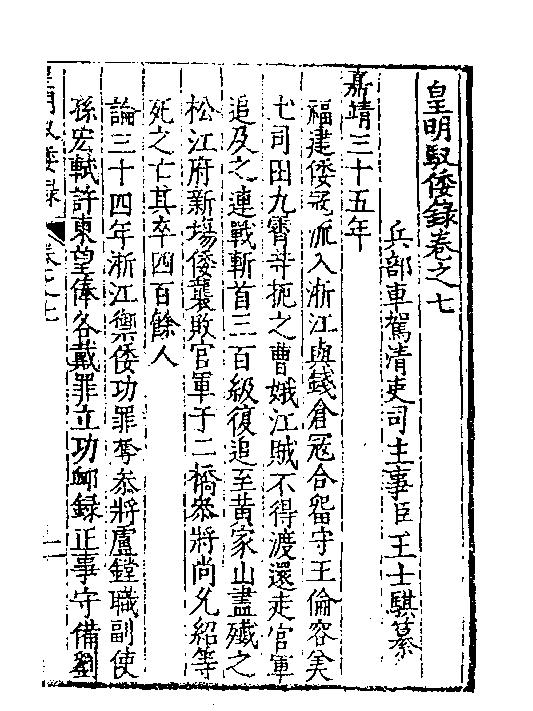 皇明馭倭錄卷之七
兵部車駕清吏司主事臣王士騏纂
嘉靖三十五年
福建倭冦流入浙江與錢倉冦合畱守王倫容美
七司田九霄等扼之曹娥江賊不得渡還走官軍
追及之連戰斬首三百級復追至黃家山盡殲之
松江府新場倭襲敗官軍于二橋叅將尚允紹等
死之亡其卒四百餘人
論三十四年浙江禦倭功罪奪叅將盧鏜職副使
孫宏軾許東望俸各戴罪立功卹錄正事守備劉
皇明馭倭錄
卷之七
一